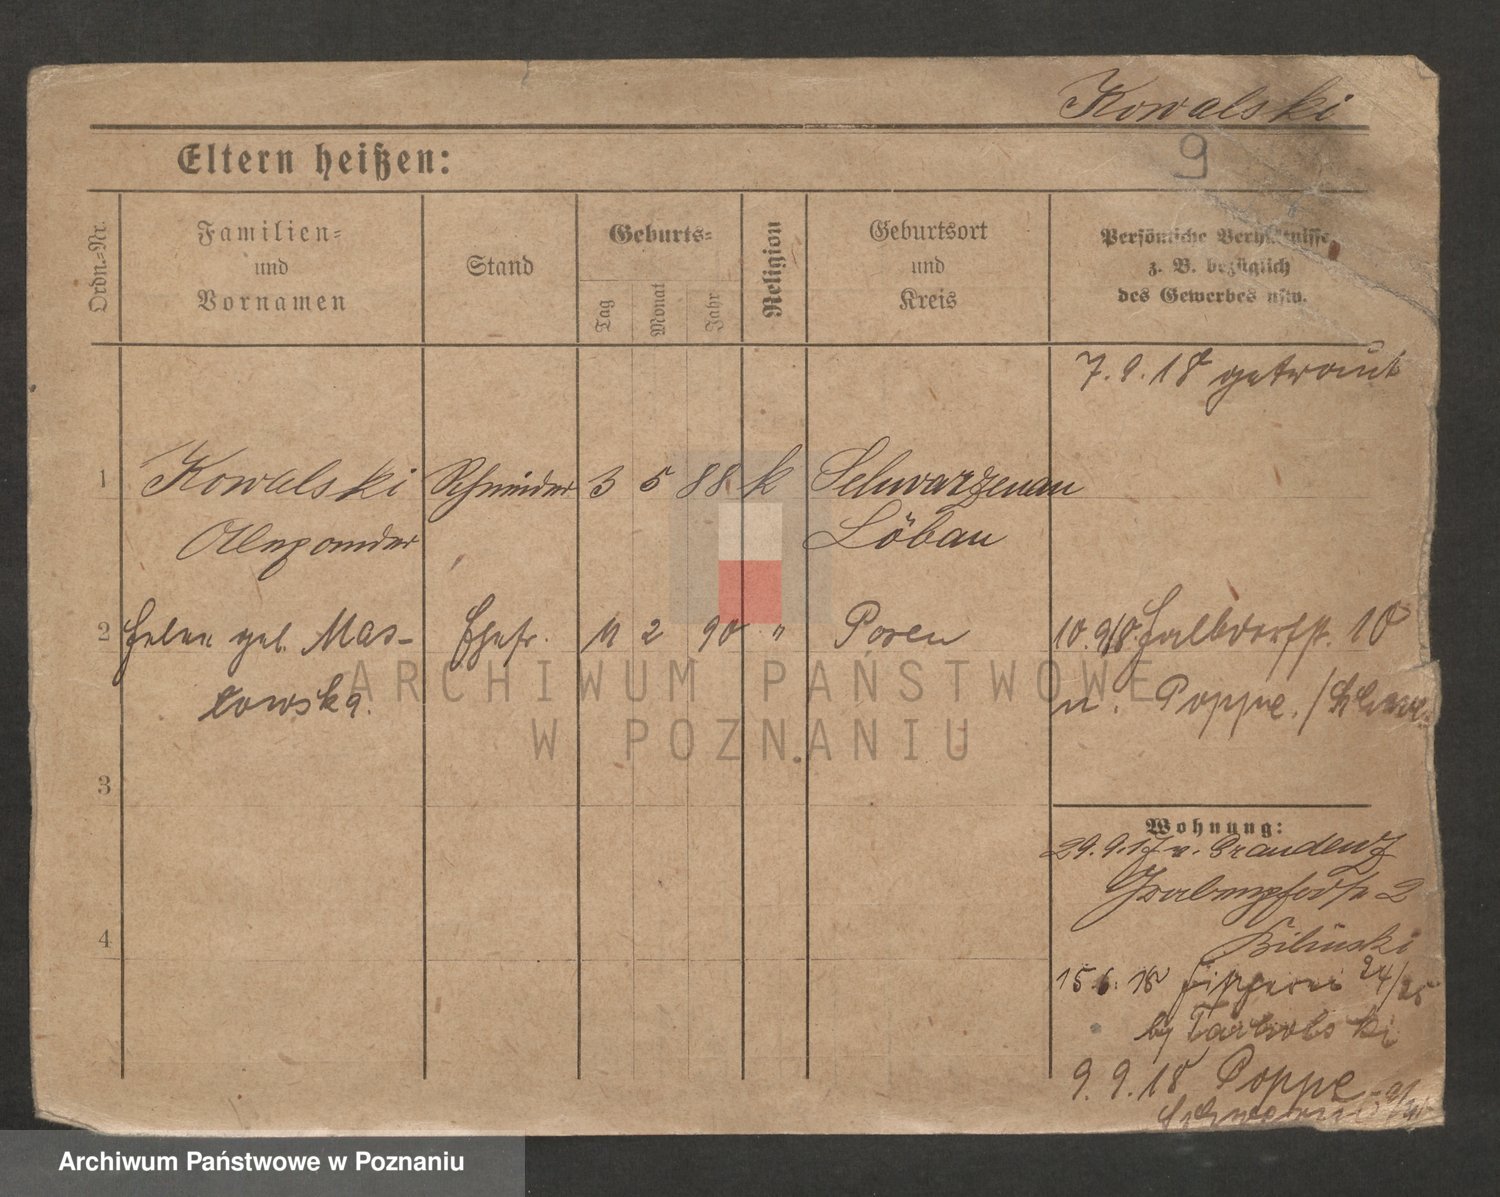 Kowalski
9
Eltern heißen:
Ordn.-Nr.
Familien-
und
Vornamen
Stand
Geburts-
Tag
Monat
Jahr
Religion
Geburtsort
und
Kreis
Persönliche Verhältnisse
z. B. bezüglich
des Gewerbes usw.
7.9.18 getraut
1 Kowalski Schneider 3 5 88 k Schwarzenau
Alexander Löbau
2 Helene geb. Mas- Ehefr. 11 2 90 " Posen 10.9.18. Halbdorfstr. 10
lowska. Poppe.
3
Wohnung:
29.9.17 v. Graudenz
2
Bilinski
4
15.6.18 Fischerei 24/25
by
9.9.18 Poppe
ARCHIWUM PAŃSTWOWE
W POZNANIU
Archiwum Państwowe w Poznaniu